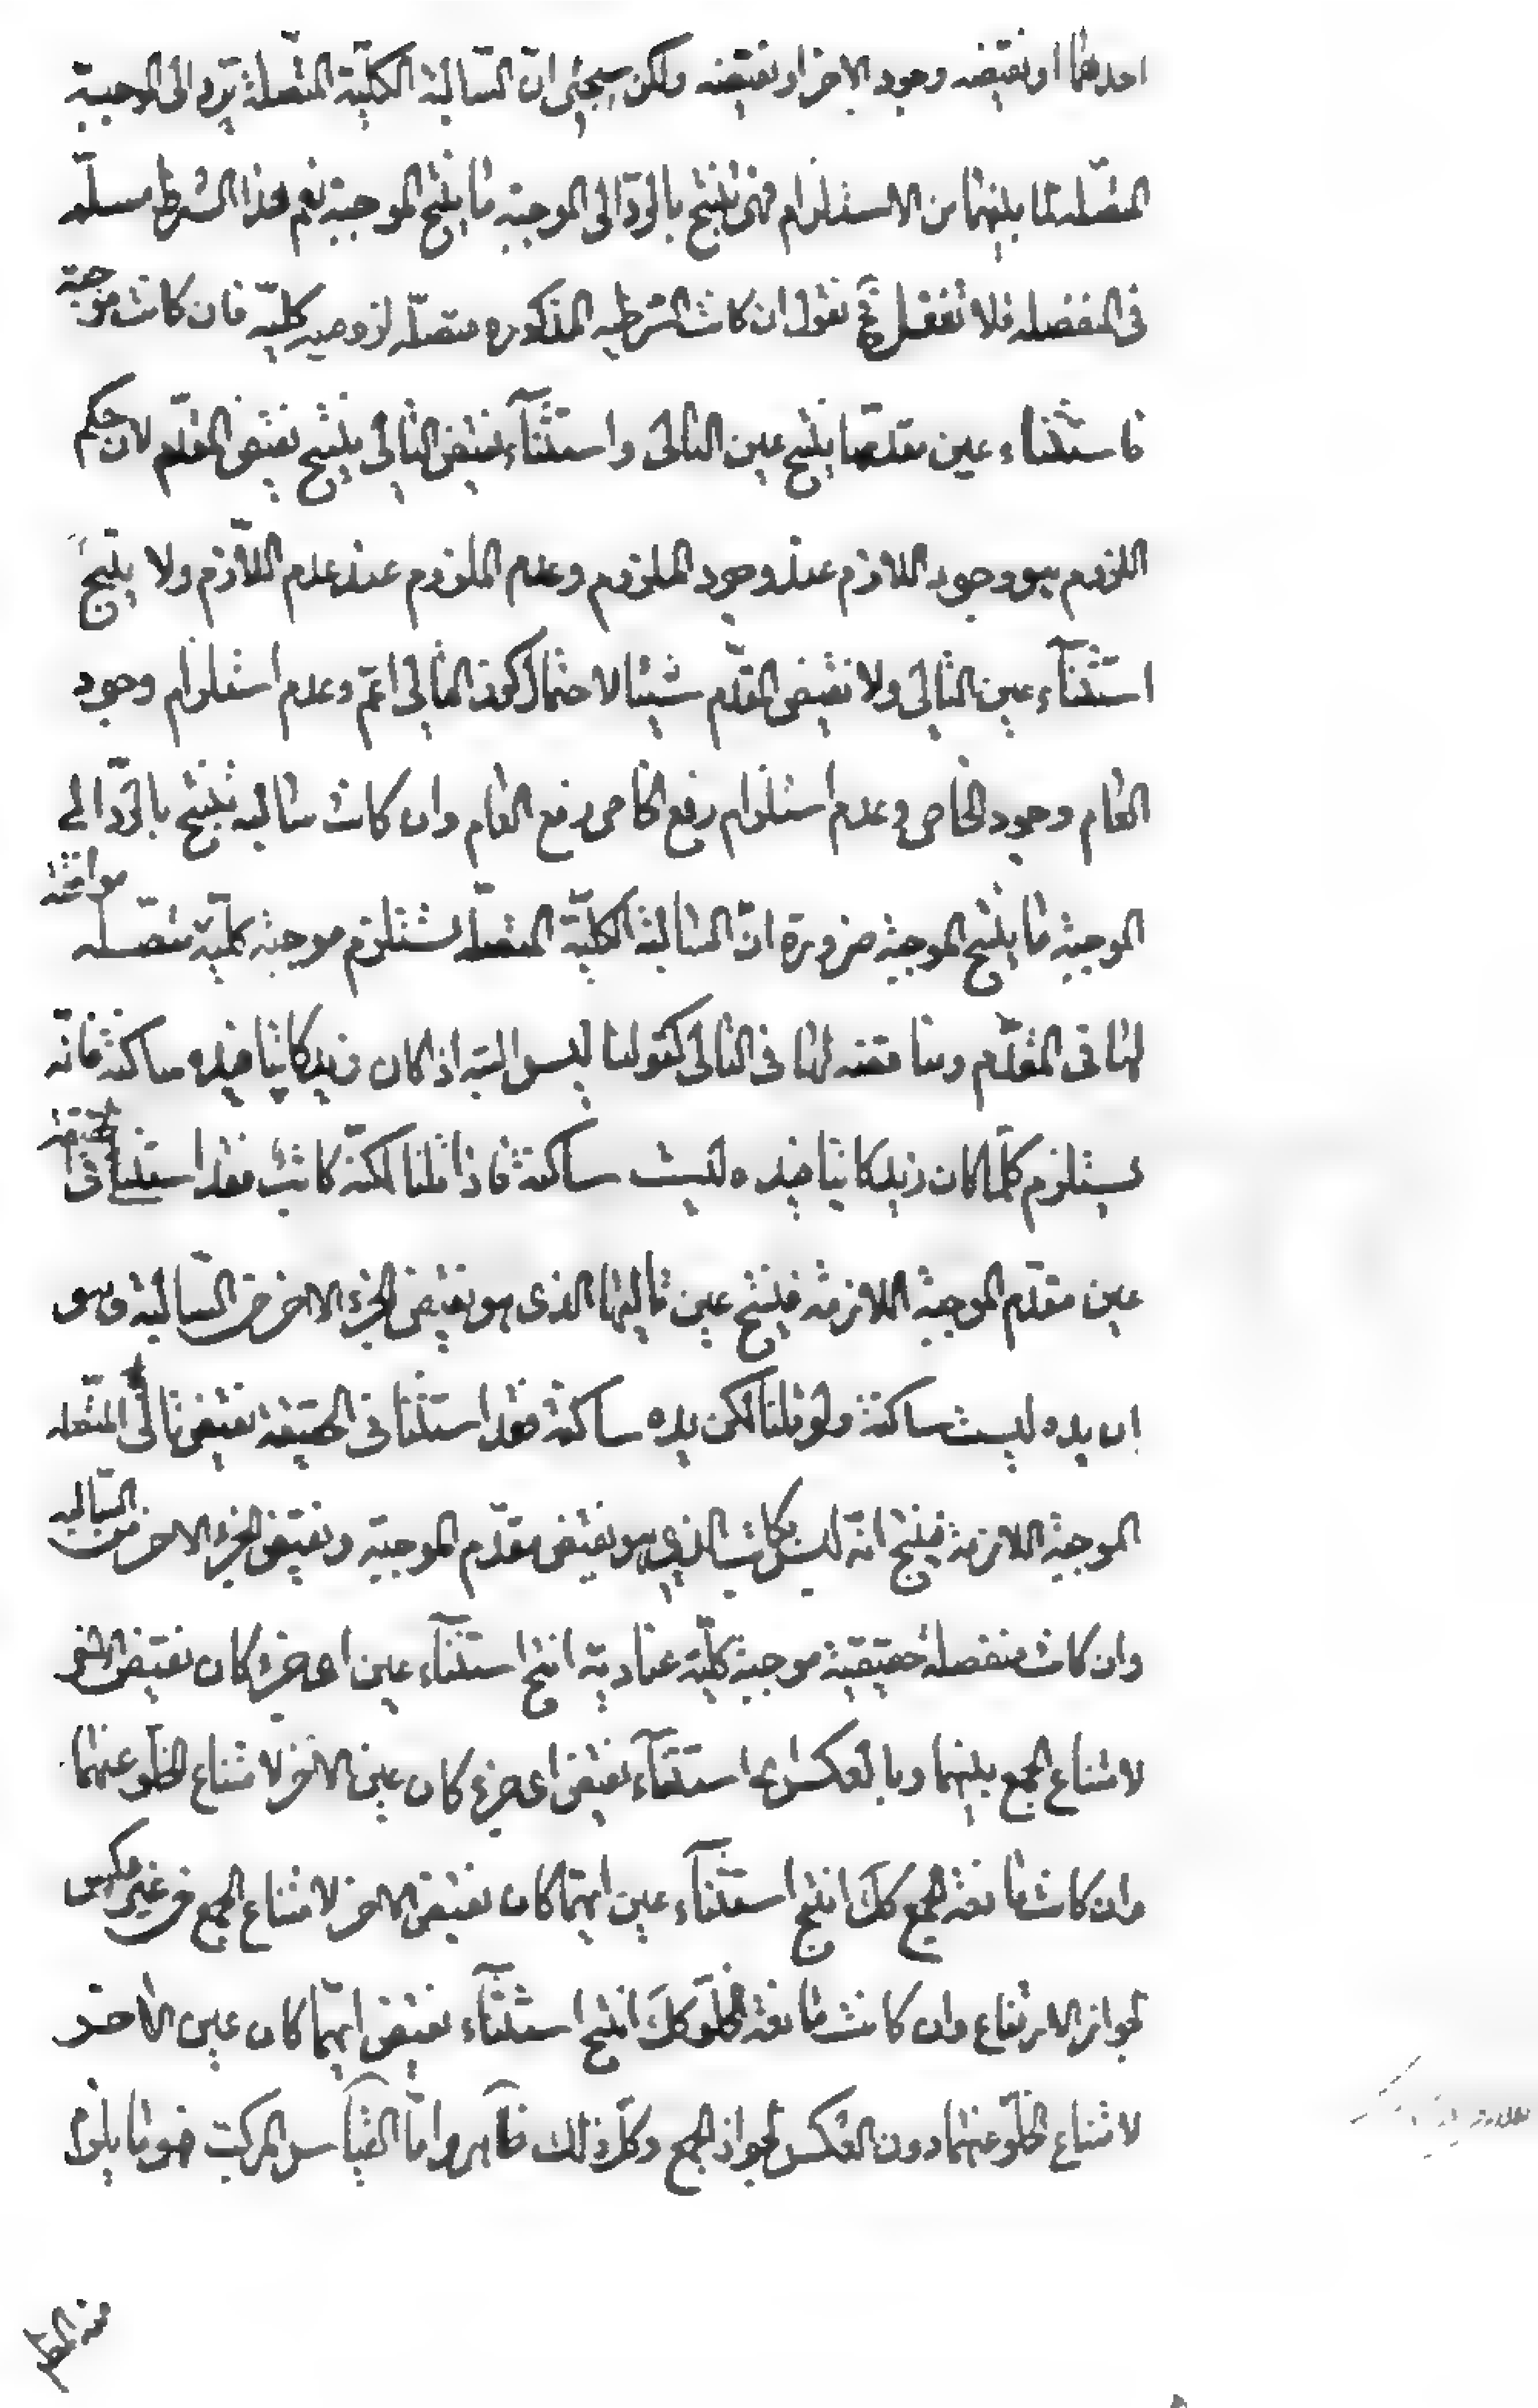 احدهما او نقيضه وجود الاخر او نقيضه ولكن سيجئ ان السالبة الكلية المتصلة ترد الى الموجبة
المتصله لما بينهما من الاستلزام فهى تنتج بالرد الى الموجبة ما ينتج الموجبة نعم هذا الشرط مسلم
فى المنفصله فلا تغفل ثم نقول ان كانت الشرطيه المذكوره متصله لزوميه كليه فان كانت موجبة
فاستثناء عين مقدمها ينتج عين التالى واستثناء نقيض التالى ينتج نقيض المقدم لان حكم
اللزوم هو وجود اللازم عند وجود الملزوم وعدم الملزوم عند عدم اللازم ولا ينتج
استثناء عين التالى ولا نقيض المقدم شيئا لاحتمال كون التالى اعم وعدم استلزام وجود
العام وجود الخاص وعدم استلزام رفع الخاص رفع العام وان كانت سالبه تنتج بالرد الى
الموجبة ما ينتج الموجبة ضرورة ان السالبة الكلية المتصله تستلزم موجبة كلية متصله موافقة
لها فى المقدم ومناقضه لها فى التالى كقولنا ليس البته اذ كان زيد كاتبا فيده ساكنة فانه
يستلزم كلما كان زيد كاتبا فيده ليست ساكنة فاذا قلنا لكنه كاتب فقد استثنينا فى الحقيقة
عين مقدم الموجبة اللازمة فينتج عين تاليها الذى هو نقيض الجزء الاخر من السالبة وهو
ان يده ليست ساكنة ولو قلنا لكن يده ساكنة فقد استثنا فى الحقيقة نقيض تالى المتصله
الموجبة اللازمة فينتج انه ليس بكاتب الذى هو نقيض مقدم الموجبة ونقيض الجزء الاخر من السالبه
وان كانت منفصلة حقيقية موجبة كلية عنادية انتج استثناء عين اى جزء كان نقيض الاخر
لامتناع الجمع بينهما وبالعكس اى استثناء نقيض اى جزء كان عين الاخر لامتناع الخلو عنهما
وان كانت مانعة الجمع كك انتج استثناء عين ايهما كان نقيض الاخر لامتناع الجمع من غير عكس
لجواز الارتفاع وان كانت مانعة الخلو كك انتج استثناء نقيض ايهما كان عين الاخر
لامتناع الخلو عنهما دون العكس لجواز الجمع وكل ذلك ظاهر واما القياس المركب فهو ما يلزم